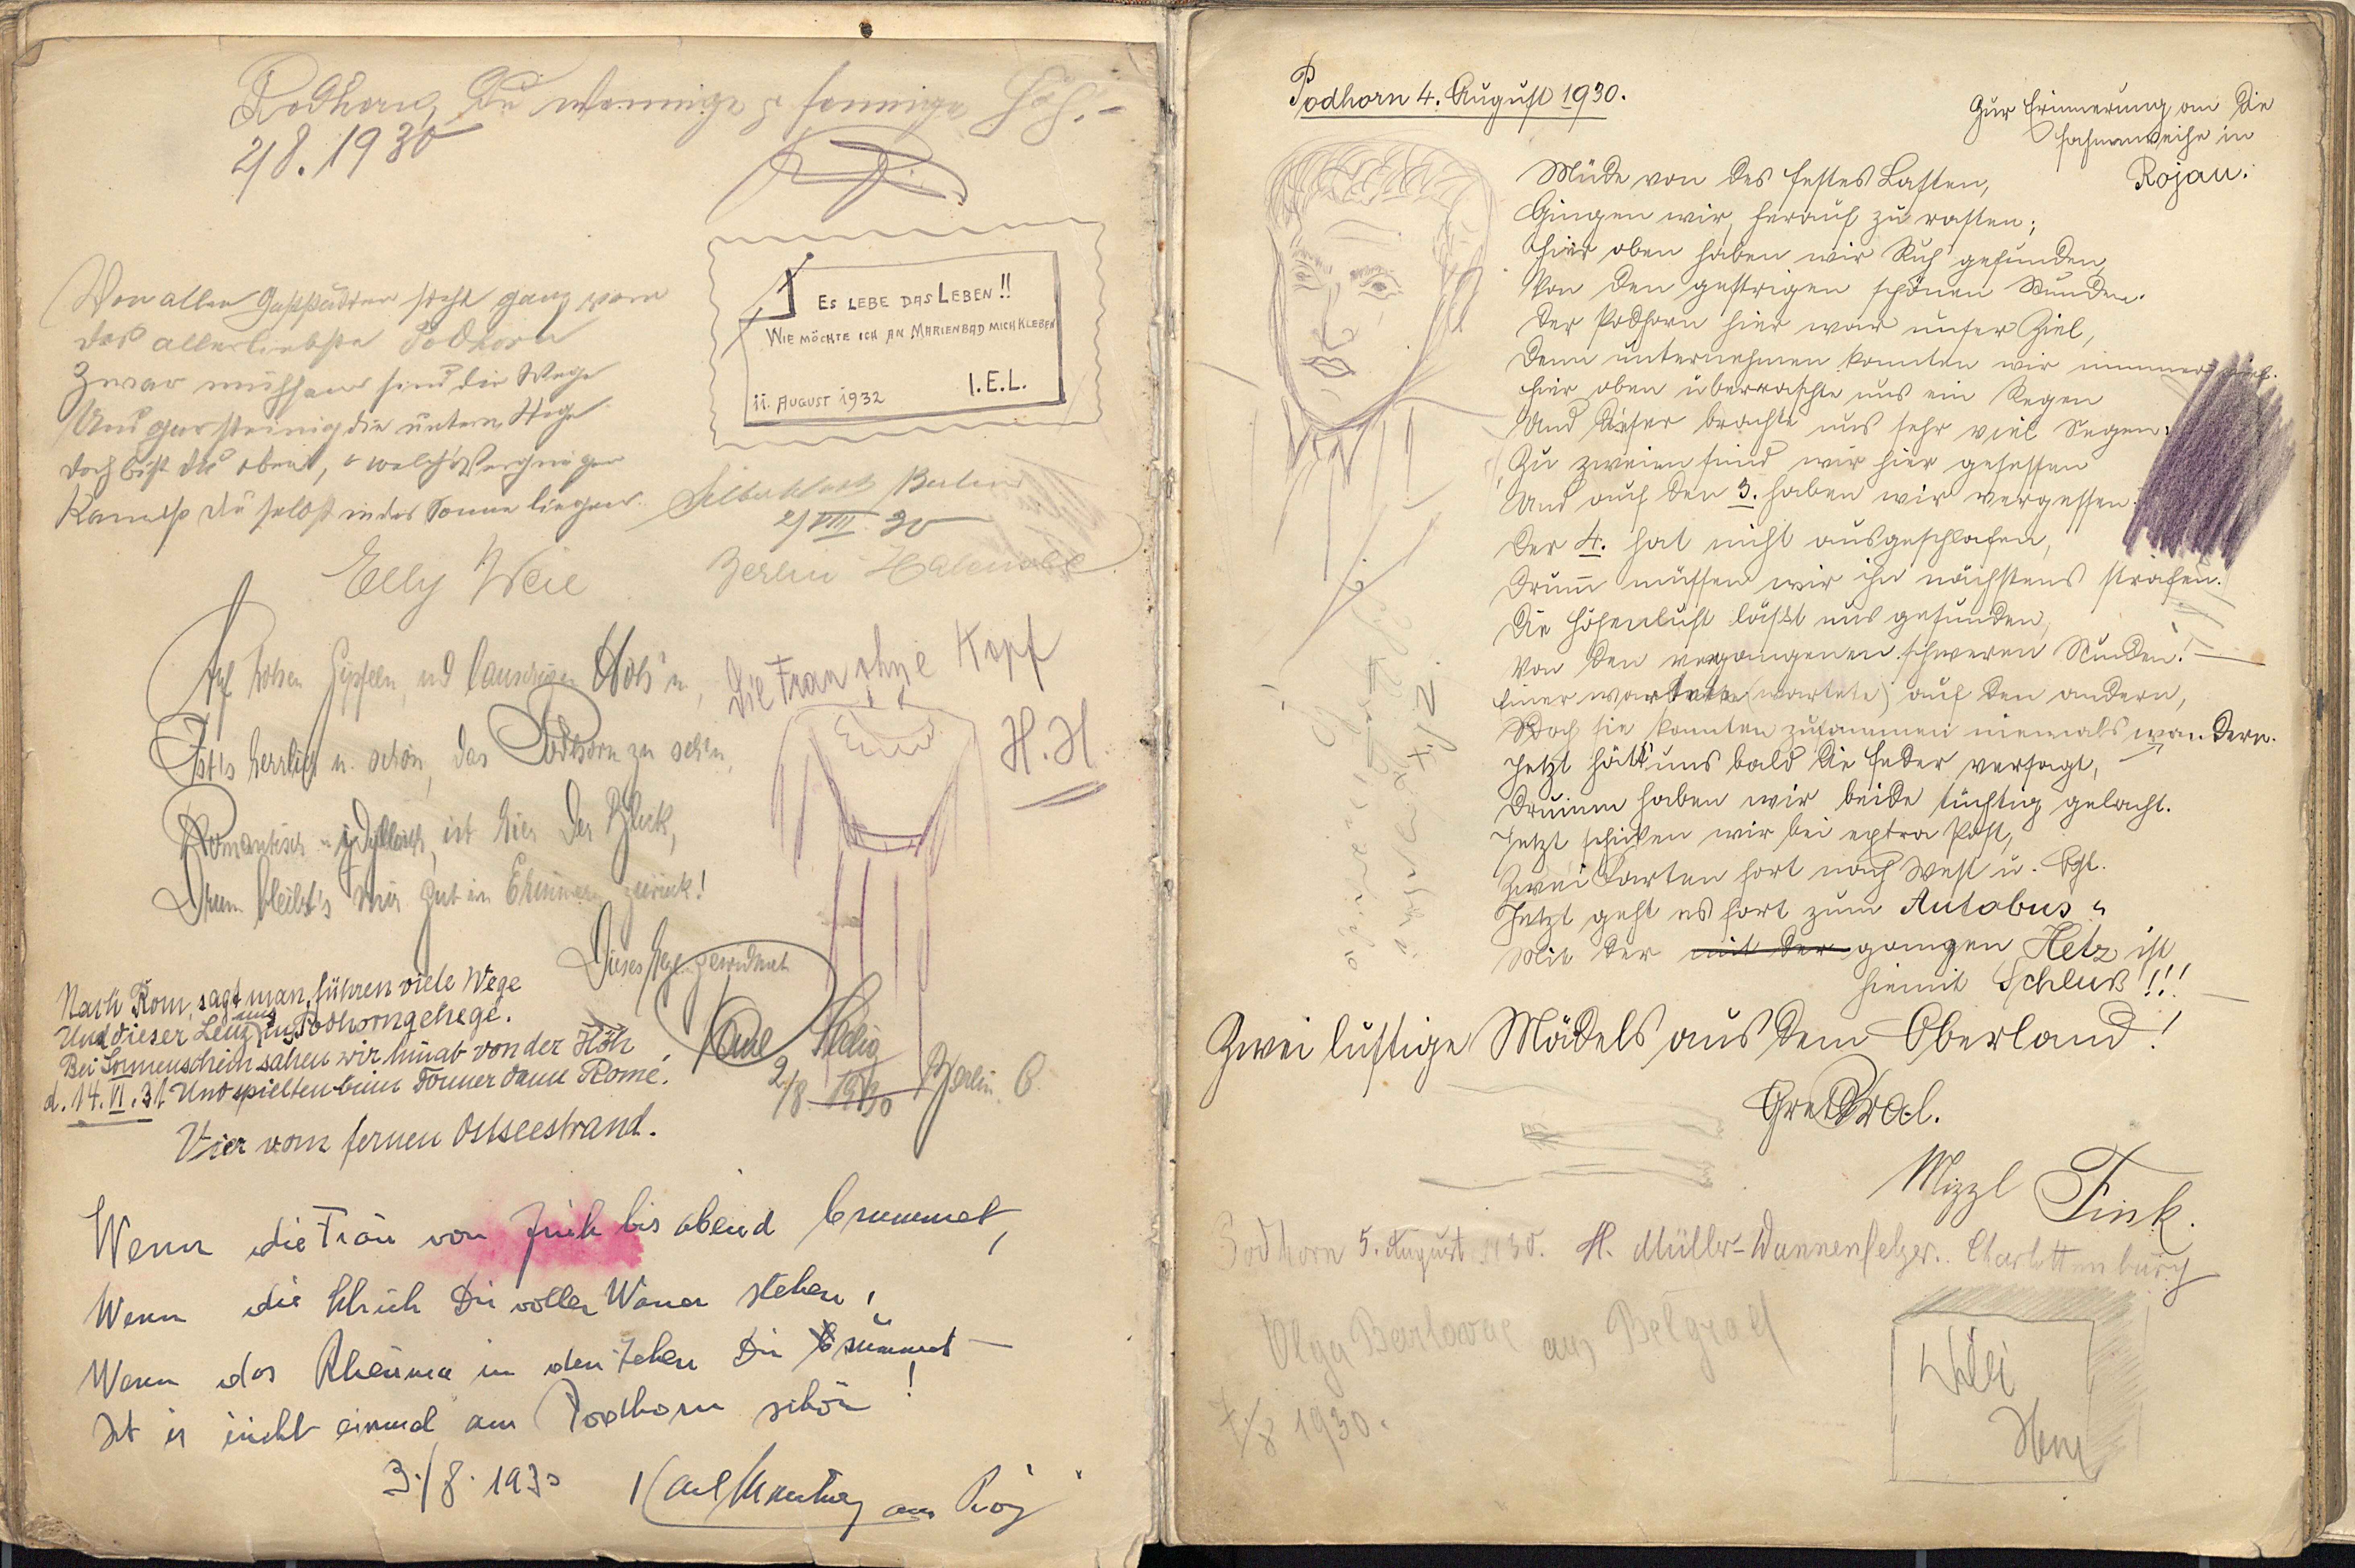 Podhorn, Du wonnige, sonnige Höh'. –
2/8. 1930
Von allen steht ganz vorn
das allerliebste Podhorn
Zwar mühsam sind die Wege
Und gar steinig die untern Stege
Doch bist du oben, o welch Vergnügen
Kannst du selbst in der Sonne liegen.
Elly Weil
ES LEBE DAS LEBEN!!
WIE MÖCHTE ICH AN MARIENBAD MICH KLEBEN
11. AUGUST 1932 I.E.L.
Berlin
2/VIII. 30
Berlin Halensee
Auf hohen Gipfeln, und lauschigen Höh'n,
Ist's herrlich u. schön, das Podhorn zu seh'n,
Romantisch – idyllisch, ist hier der Blick,
Drum bleibt's mir gut in Erinner. zurück!
Dieses gewidmet
2/8. 1930 Berlin
Die Frau ohne Kopf
H. H.
Nach Rom, sagt man, führen viele Wege
Und dieser Lenz uns in's Podhorngehege.
Bei Sonnenschein sahen wir hinab von der Höh
d. 14. VI. 31 Und spielten beim Donner dann Romé.
Vier vom fernen Ostseestrand.
Wenn die Frau von früh bis abend brummet,
Wenn die Dir voller Wasser stehen,
Wenn das Rheuma in den Zehen Dir
Ist es nicht einmal am Podhorn schön!
3./8. 1930 Karl
Podhorn 4. August 1930.
Zur Erinnerung an die
Fahnenweihe in
Rojau.
Müde von des Festes Lasten,
Gingen wir, herauf zu rasten;
Hier oben haben wir Ruh gefunden,
Von den gestrigen schönen Stunden.
Der Podhorn hier war unser Ziel,
Denn unternehmen konnten wir nimmer viel.
Hier oben überraschte uns ein Regen
Und dieser brachte uns sehr viel Segen:
Zu zweien sind wir hier gesessen
Und auf den 3. haben wir vergessen.
Der 4. hat nicht ausgeschlafen,
Drum müssen wir ihn nächstens strafen.
Die Höhenluft läßt uns gesunden,
Von den vergangenen schweren Stunden! —
Einer (wartete) auf den andern,
Doch sie konnten zusammen niemals wandern.
Jetzt hätt' uns bald die Feder versagt,
Drumm haben wir beide tüchtig gelacht.
Jetzt schicken wir bei extra Post,
Zwei Karten fort nach West u. Ost.
Jetzt geht es fort zum Autobus
Mit der mit der ganzen Hetz ist
hiemit Schluß!!! —
Zwei lustige Mädels aus dem Oberland!
Gretl Kral.
Mizzl Fink.
Podhorn 5. August 1930. H. Müller-Dannenfelser. Charlottenburg
Olga aus Belgrad
7/8 1930.